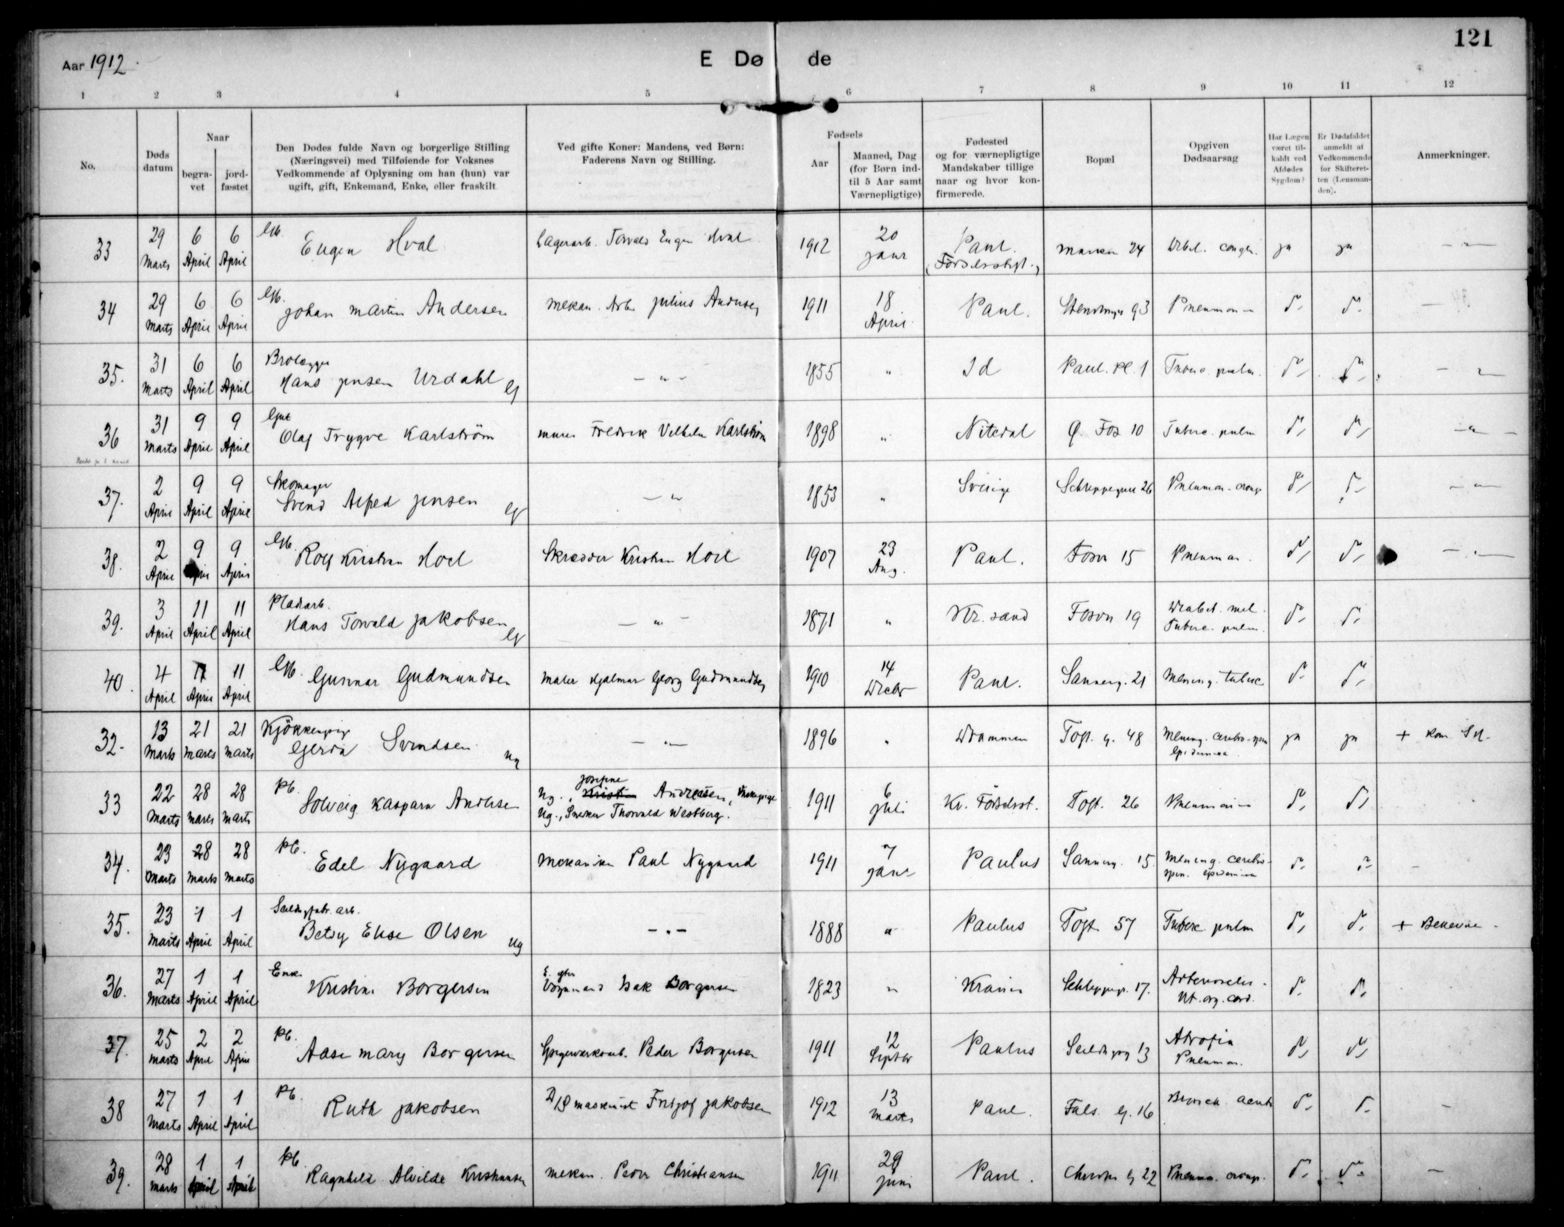 Aar 1912.
E Dø de
121
1 2 3 4 5 6 7 8 9 10 11 12
No.
Døds datum
Naar
begravet
jordfæstet
Den Dødes fulde Navn og borgerlige Stilling
(Næringsvei) med Tilføiende for Voksnes
Vedkommende af Oplysning om han (hun) var
ugift, gift, Enkemand, Enke, eller fraskilt
Ved gifte Koner: Mandens, ved Børn:
Faderens Navn og Stilling.
Fødsels
Aar
Maaned, Dag
(for Børn ind-
til 5 Aar samt
Værnepligtige)
Fødested
og for værnepligtige
Mandskaber tillige
naar og hvor kon-
firmerede.
Bopæl
Opgiven
Dødsaarsag
Har Lægen
været til-
kaldt ved
Afdødes
Sygdom?
Er Dødsfaldet
anmeldt at
Vedkommende
for Skifteret-
ten (Lensman-
den).
Anmerkninger.
33 29 Marts 6 April 6 April Eugen Hval Lagerarb. Torvald Eugen Hval 1912 20 Janr Paul. (Fødselsstift.) Marken 24 ja ja
34 29 Marts 6 April 6 April Johan Martin Andersen Mekan. Arb. Julius Andersen 1911 18 April Paul. 93 Pneumoni
35. 31 Marts 6 April 6 April Brolægger Hans Jensen Urdahl 1855 Id Paul. Pl. 1 Tuberc. pulm.
36 31 Marts 9 April 9 April Gut Olaf Trygve Karlstrøm Murer Fredrik Vilhelm Karlstrøm 1898 Nitedal Ø. Fos 10 Tuberc. pulm
37. 2 April 9 April 9 April Skomager Svend Alfred Jensen 1853 Sverige Schleppegrells 26 Pneumon. croup
38. 2 April 9 April 9 April Rolf Kristian Hoel Skrædder Kristian Hoel 1907 23 Aug. Paul. Fosv 15 Pneumon.
39. 3 April 11 April 11 April Pladearb. Hans Torvald Jakobsen 1871 Kr. sand Fosvn 19 Diabet. mel. Tuberc. pulm.
40. 4 April 11 April 11 April Gunnar Gudmundsen Maler Hjalmar Georg Gudmundsen 1910 14 Decbr Paul. Sannerg. 21 Mening. tuberc
32. 13 Marts 21 Marts 21 Marts Kjøkkenpige Gerda Svendsen ug 1896 Drammen Toft. g. 48 Mening. cerebro-spin epidemica ja ja
33 22 Marts 28 Marts 28 Marts Pb. Solveig Kaspara Andersen Ug., Josefine Andresen, Ug., Snekker Thorvald Westberg. 1911 6 Juli Kr. Fødselsst. Toft. 26 Pneumonia
34. 23 Marts 28 Marts 28 Marts Pb. Edel Nygaard Mekaniker Paul Nygaard 1911 7 Janr Paulus Sannerg. 15 Mening. cerebro-spin. epidemica
35. 23 Marts 1 April 1 April Betsy Elise Olsen ug 1888 Paulus Toft 57 Tuberc pulm + Bellevue
36. 27 Marts 1 April 1 April Enke Kristine Borgersen Vognmand Isak Borgersen 1823 Schleppegr. 17. Arterioscler.
37. 25 Marts 2 April 2 April Pb. Aase Mary Borgersen Sporveisarb. Peder Borgersen 1911 12 Septbr Paulus Seildugsg 13 Atrofia Pneumon.
38 27 Marts 1 April 1 April Pb. Ruth Jakobsen Maskinist Fritjof Jakobsen 1912 13 Marts Paul. Fals. g. 16 Bronch. acuta
39. 28 Marts 1 April 1 April Pb. Ragnhild Alvilde Kristiansen Mekan. Peder Christiansen 1911 29 Juni Paul. g 22 Pneum. croup.